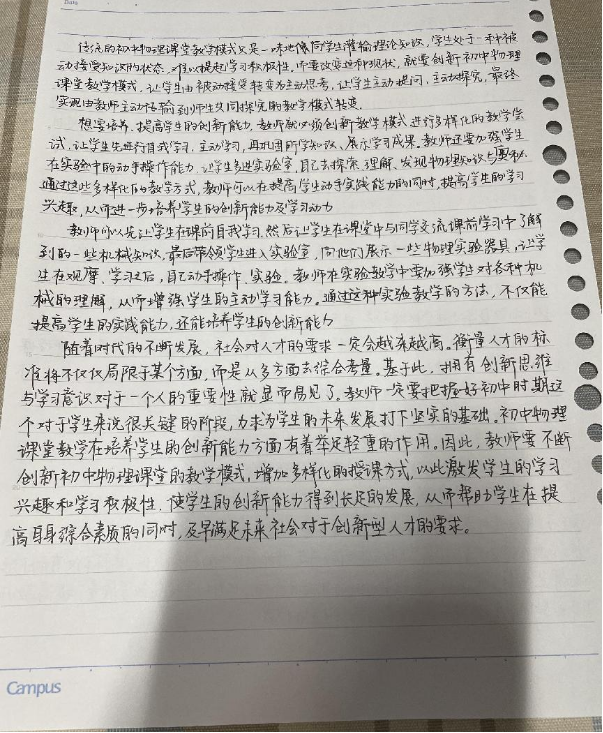 Date
传统的初中物理课堂教学模式只是一味地像同学生灌输理论知识,学生处于一种被
动接受知识的状态,难以提起学习积极性,而要改变这种现状,就要创新初中物理
课堂教学模式,让学生由被动接受转变为主动思考,让学生主动提问,主动探究,最终
实现由教师主动传输到师生共同探究的教学模式转变。
想要培养、提高学生的创新能力,教师就必须创新教学模式进行多样化的教学尝
试,让学生先进行自我学习、主动学习,再巩固所学知识、展示学习成果。教师还要加强学生
在实验中的动手操作能力,让学生多进实验室,自己去探索、理解、发现物理知识与奥秘。
通过这些多样化的教学方式,教师可以在提高学生动手实践能力的同时,提高学生的学习
兴趣,从而进一步培养学生的创新能力及学习动力
教师可以先让学生在课前自我学习,然后让学生在课堂中与同学交流课前学习中了解
到的一些机械知识,最后带领学生进入实验室,向他们展示一些物理实验器具,让学
生在观摩、学习之后,自己动手操作、实验。教师在实验教学中要加强学生对各种机
械的理解,从而增强学生的主动学习能力。通过这种实验教学的方法,不仅能
提高学生的实践能力,还能培养学生的创新能力
随着时代的不断发展,社会对人才的要求一定会越来越高。衡量人才的标
准将不仅仅局限于某个方面,而是从多方面去综合考量。基于此,拥有创新思维
与学习意识对于一个人的重要性就显而易见了。教师一定要把握好初中时期这
个对于学生来说很关键的阶段,力求为学生的未来发展打下坚实的基础。初中物理
课堂教学在培养学生的创新能力方面有着举足轻重的作用。因此,教师要不断
创新初中物理课堂的教学模式,增加多样化的授课方式,以此激发学生的学习
兴趣和学习积极性,使学生的创新能力得到长足的发展,从而帮助学生在提
高自身综合素质的同时,及早满足未来社会对于创新型人才的要求。
Campus